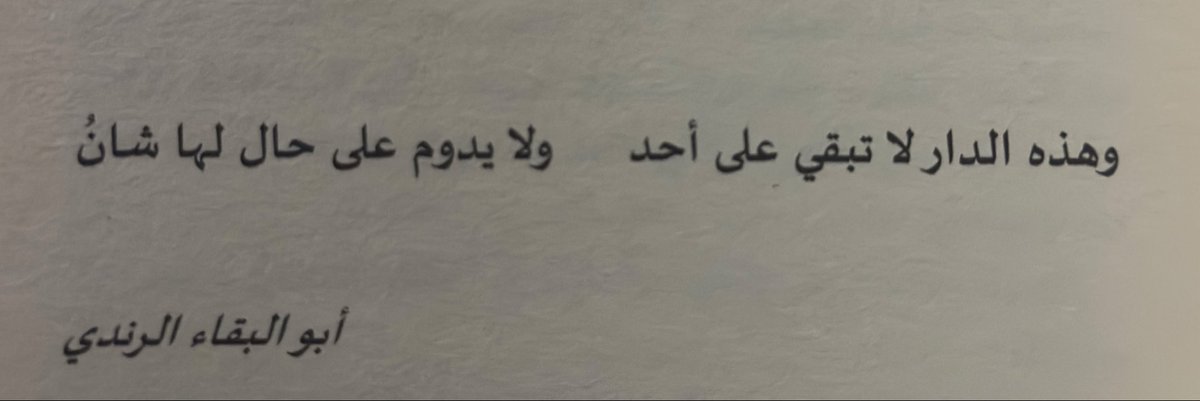 وهذه الدار لا تبقي على أحد ولا يدوم على حال لها شانُ
أبو البقاء الرندي